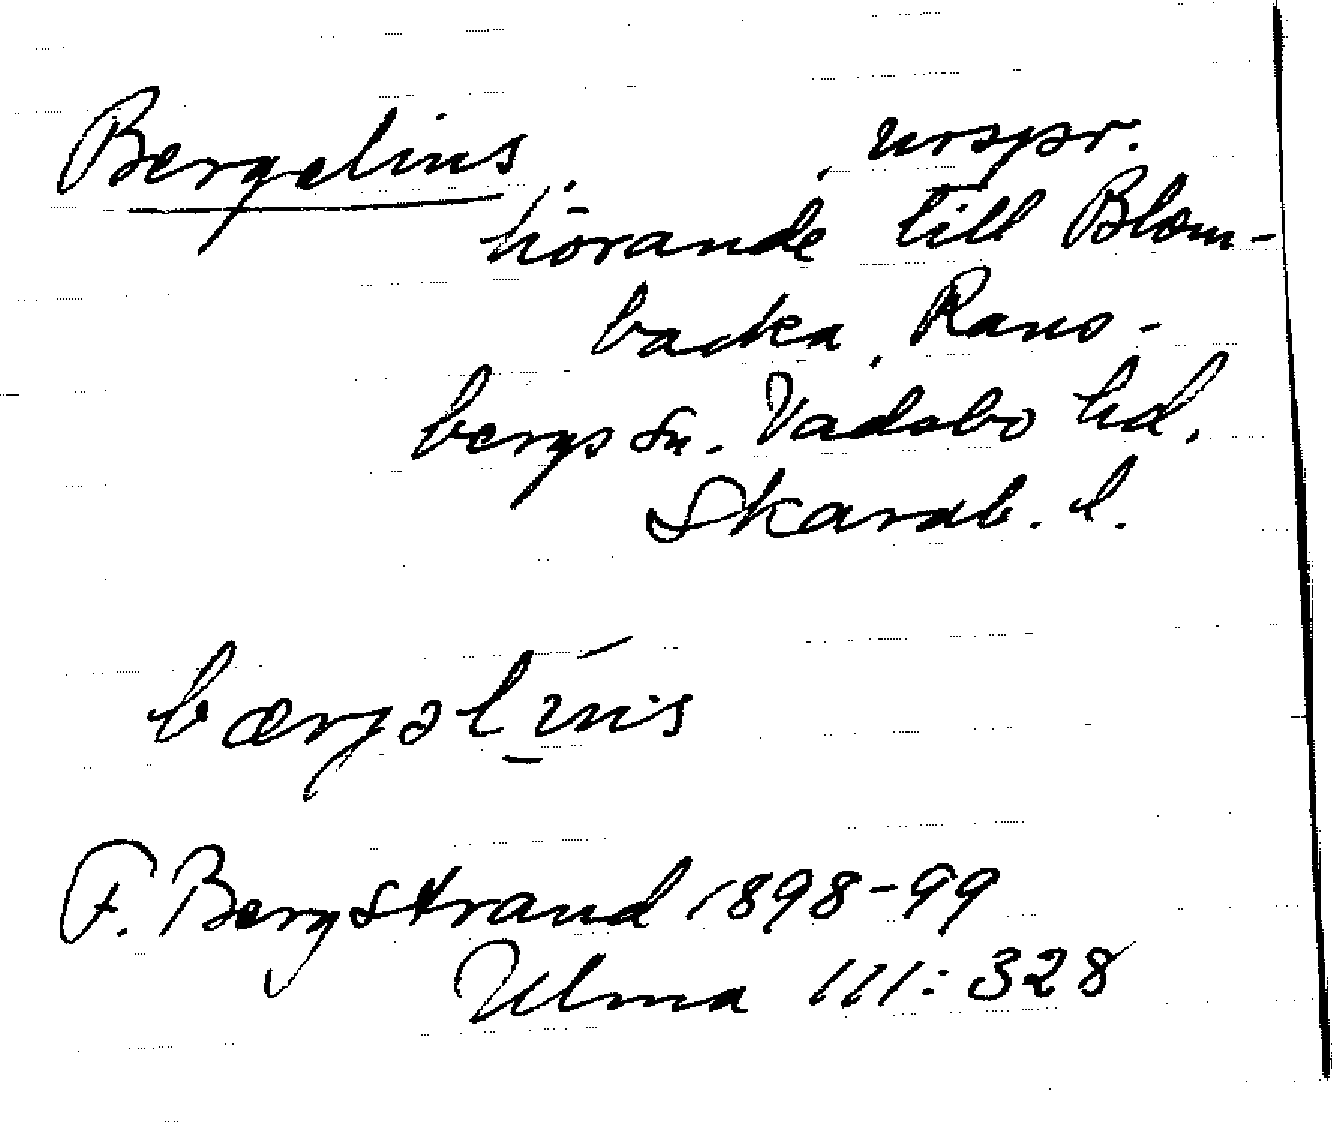 Bergelius, , urspr.
hörande till Blom-
backa, Rans-
bergs sn. Vadsbo hd,
Skarab. l.
bærgəlīus
F. Bergstrand 1898-99
Ulma 111:328